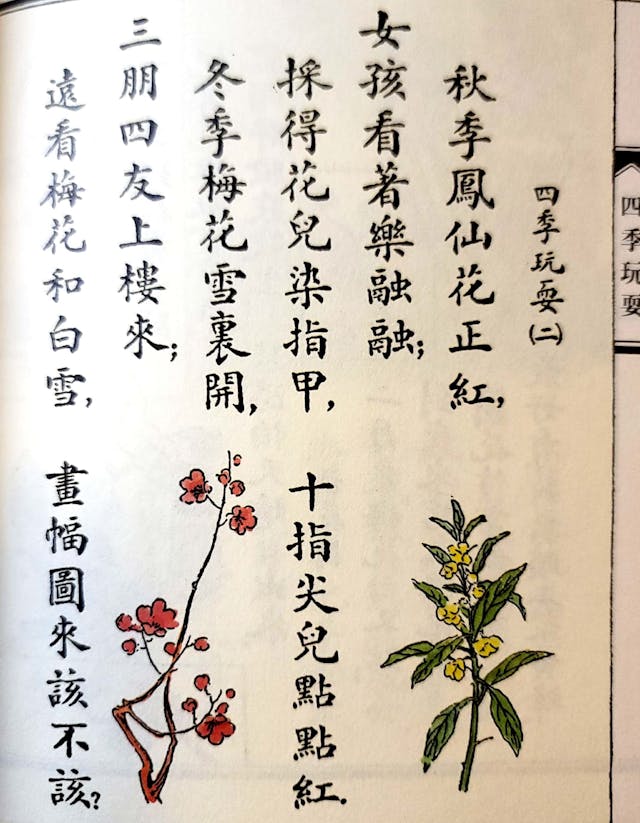 四季玩耍
四季玩耍(二)
秋季鳳仙花正紅,
女孩看著樂融融;
採得花兒染指甲,
十指尖兒點點紅.
冬季梅花雪裏開,
三朋四友上樓來;
遠看梅花和白雪,
畫幅圖來該不該?